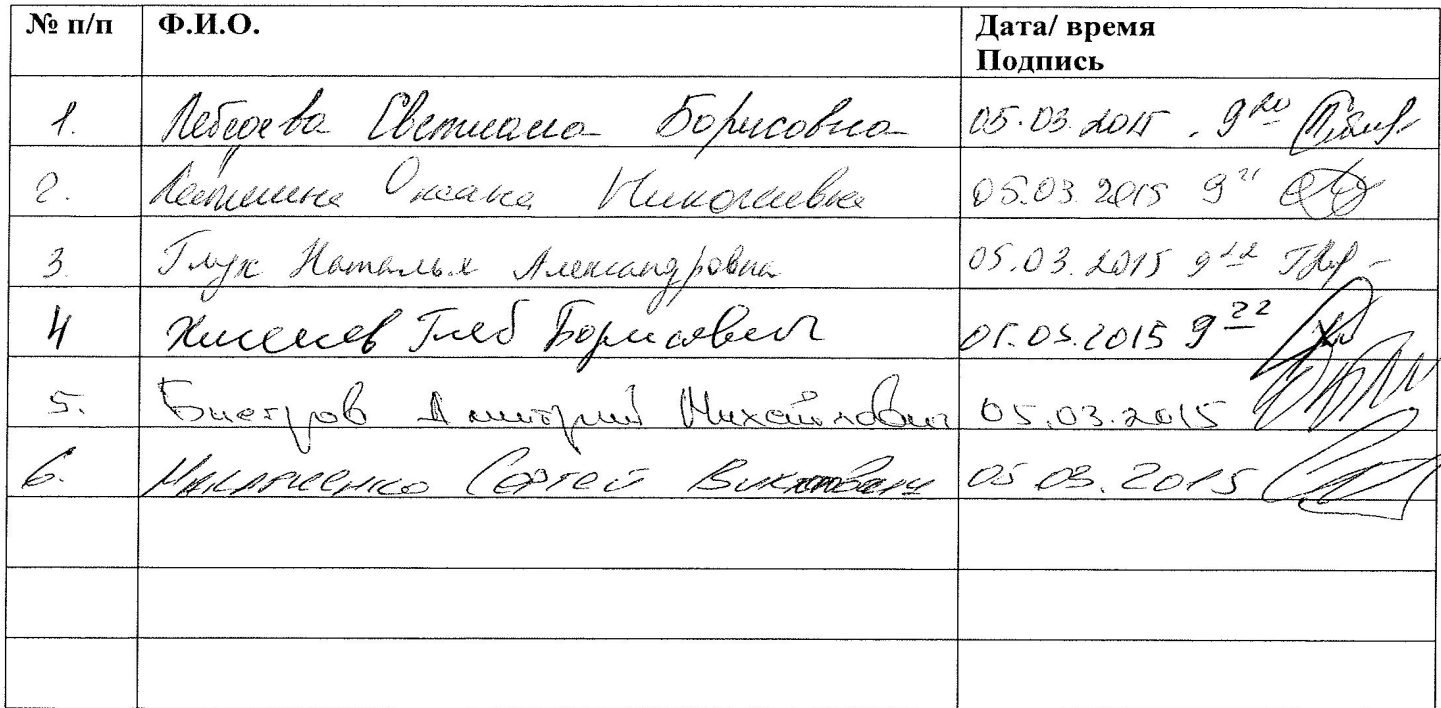 № п/п Ф.И.О. Дата/ время
Подпись
1. Лебедева Светлана Борисовна 05.03.2015. 9 20
2. Оксана Николаевна 05.03.2015 9 21
3. Глук Наталья Александровна 05.03.2015 9 22
4 Глеб Борисович 05.03.2015 9 22
5. Быстров Дмитрий Михайлович 05.03.2015
6. Сергей Викторович 05.03.2015